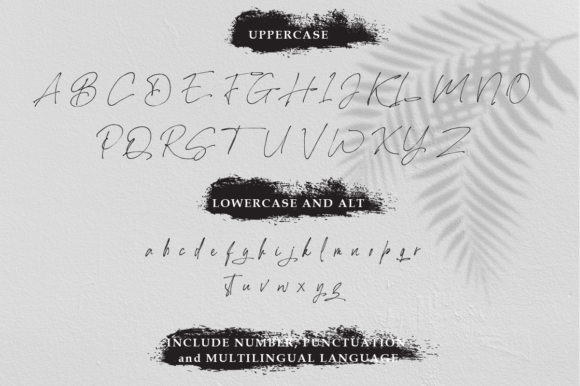 UPPERCASE
A B C D E F G H I J K L M N O
P Q R S T U V W X Y Z
LOWERCASE AND ALT
a b c d e f g h i j k l m n o p q r
s t u v w x y z
INCLUDE NUMBER, PUNCTUATION
and MULTILINGUAL LANGUAGE